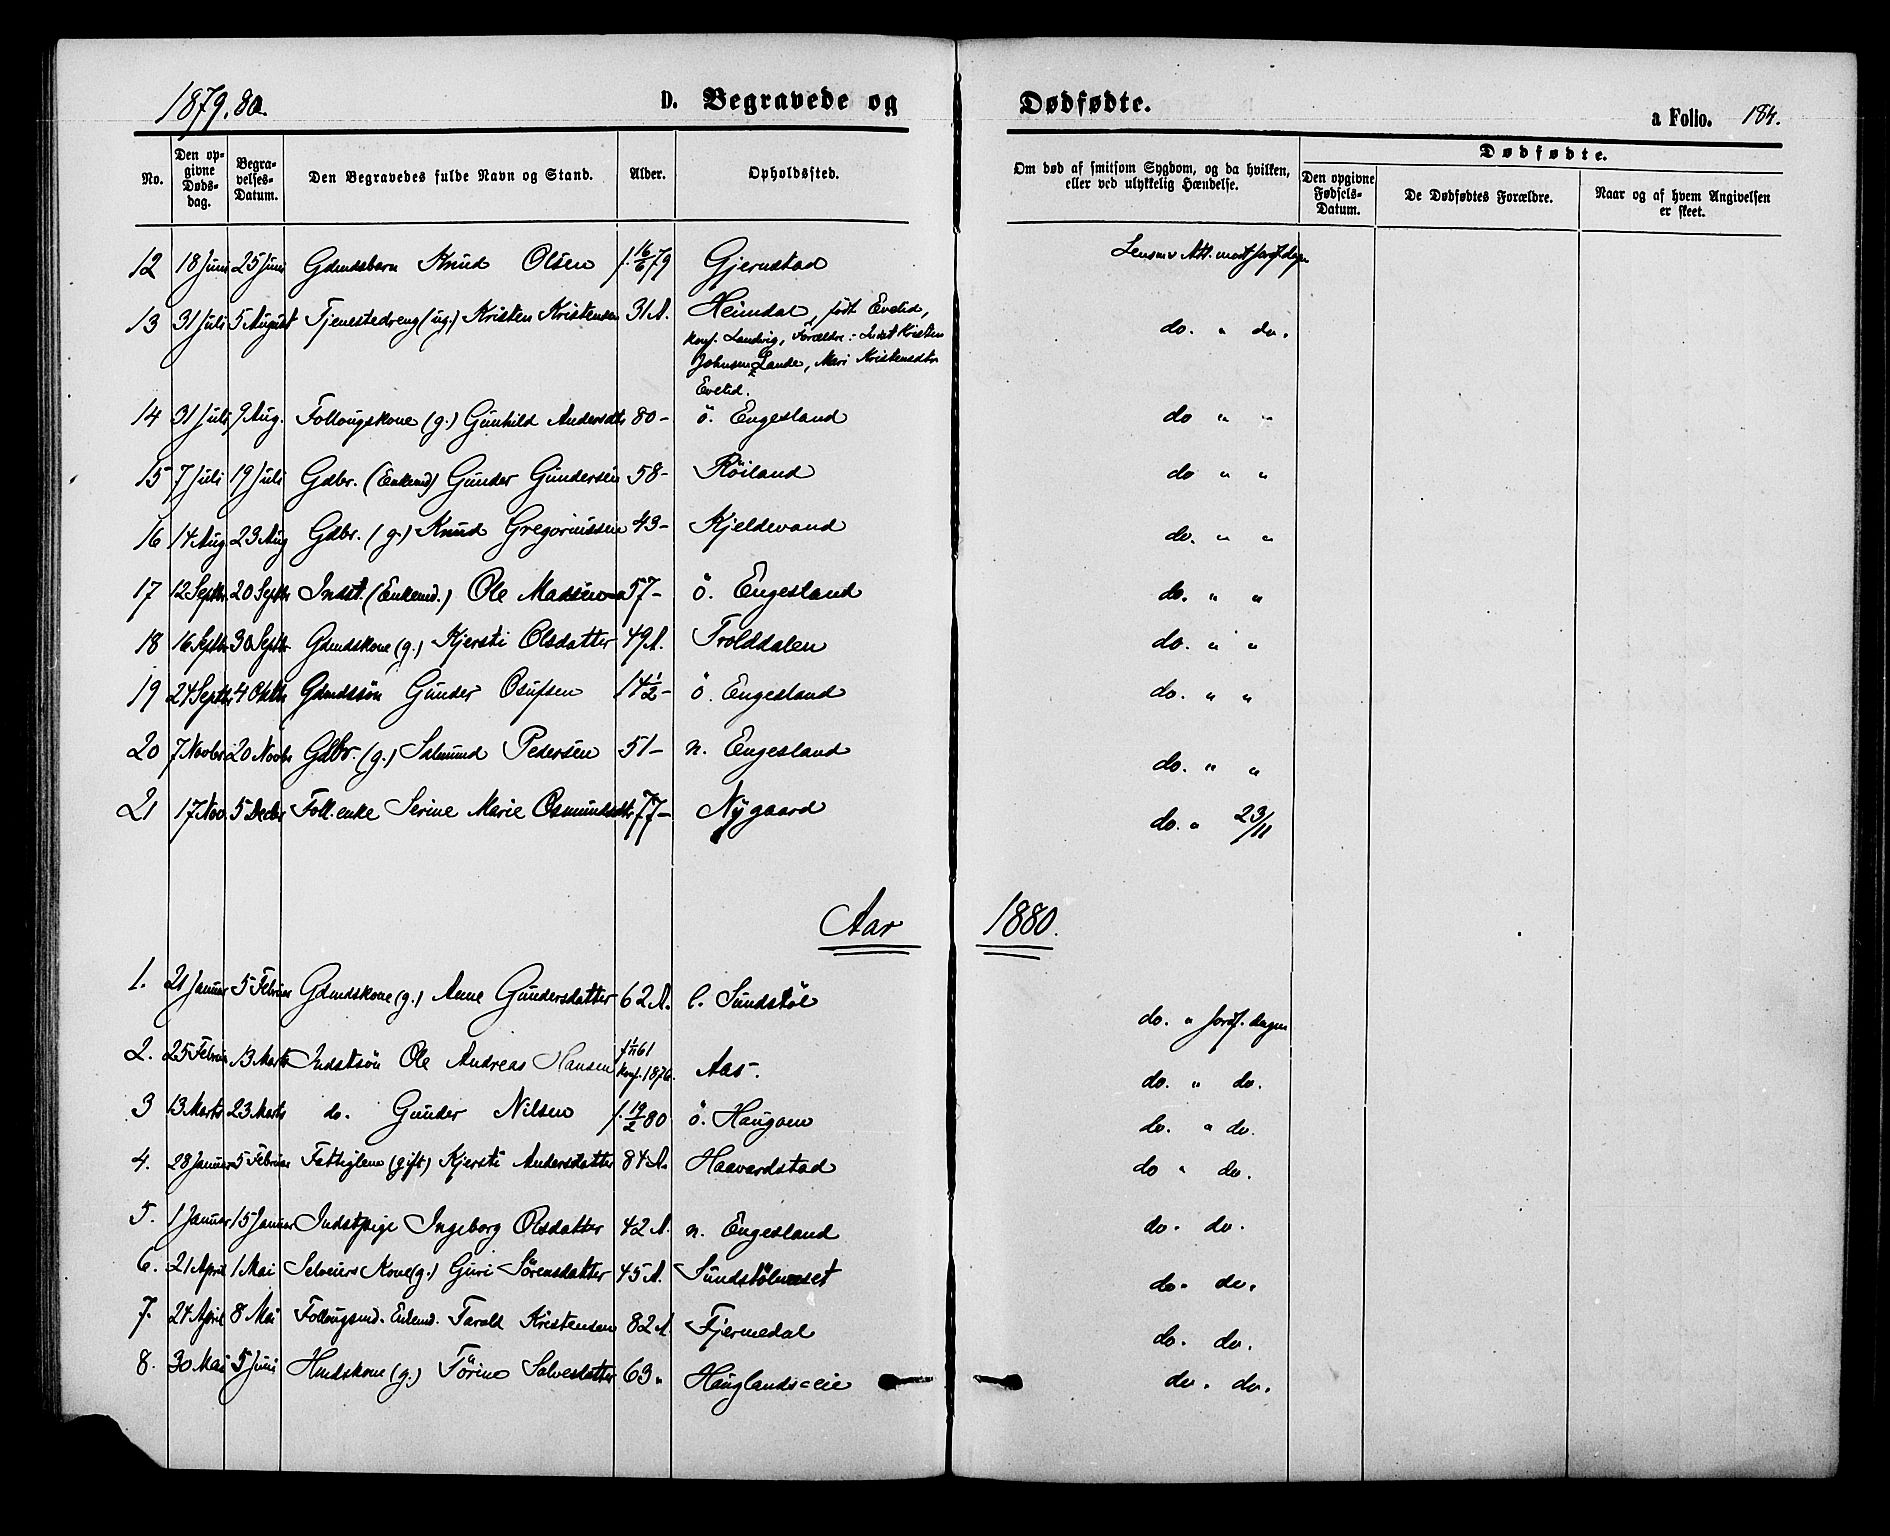 1879.80.
D. Begravede og Dødfødte.
a Folio. 184.
No.
Den opgivne Dødsdag.
Begravelses-Datum.
Den Begravedes fulde Navn og Stand.
Alder.
Opholdssted.
Om død af smitsom Sygdom, og da hvilken, eller ved ulykkelig Hændelse.
Dødfødte.
Den opgivne Fødsels-Datum.
De Dødfødtes Forældre.
Naar og af hvem Angivelsen er skeet.
12 18 Juni 25 Juni Gdmdsbarn Knud Olsen f. 16/6 79 Gjernstad Lensm.s Att. modt.
13 31 Juli 5 August Tjenestedreng (ug.) Kristen Kristensen 31 A. Heimdal, født Evetid, do. " do.
konf. Landvig, Forældre: Indst Kristen
Johnsen Lande, Mari Kristensdtr
Evetid.
14 31 Juli 9 Aug. Follougskone (g.) Gunhild Andersdtr 80 - ö. Engesland do " "
15 7 Juli 19 Juli Gdbr. (Enkemd) Gunder Gundersen 58 - Röiland do " "
16 14 Aug 23 Aug Gdbr. (g.) Knud Gregoriussen 43 - Kjeldevand do. " "
17 12 Septbr 20 Septbr Indst. (Enkemd.) Ole Madsen 57 - ö. Engesland do. " "
18 16 Septbr 30 Septbr. Gdmdskone (g.) Kjersti Olsdatter 49 A. Trolddalen do. " "
19 24 Septbr 4 Oktbr Gdmdssön Gunder Osufsen 14 1/2 - ö. Engesland do. " "
20 7 Novbr 20 Novbr Gdbr. (g.) Salmund Pedersen 51 - n. Engesland do. " "
21 17 Nov. 5 Decbr Foll.enke Serine Marie Osmundsdtr 77 - Nygaard do. " 23/11
Aar 1880.
1. 21 Januar 5 Februar Gdmdskone (g.) Anne Gundersdatter 62 A. l. Sundstöl do. " dagen
2. 25 Februar 13 Marts Indstsön Ole Andreas Hansen konf. 1876. Aas. do. " do.
3 13 Marts 23 Marts do. Gunder Nilsen f. 19/2 80 ö. Haugaen do. " do.
4. 28 Januar 5 Februar Fattiglem (gift) Kjersti Andersdatter 84 A. Haavardstad do " do.
5. 1 Januar 15 Januar Indstpige Ingeborg Olsdatter 42 A. n. Engesland do. do.
6. 21 April 1 Mai Selveiers Kone (g.) Guri Sörensdatter 45 A. Sundstölneset do. do.
7. 24 April 8 Mai Follougsmd. Enkemd. Tarald Kristensen 82 A Fjermedal do. do.
8. 30 Mai 5 Juni Hmdskone (g.) Törine Salvesdatter 63 " Hauglands=eie do. do.